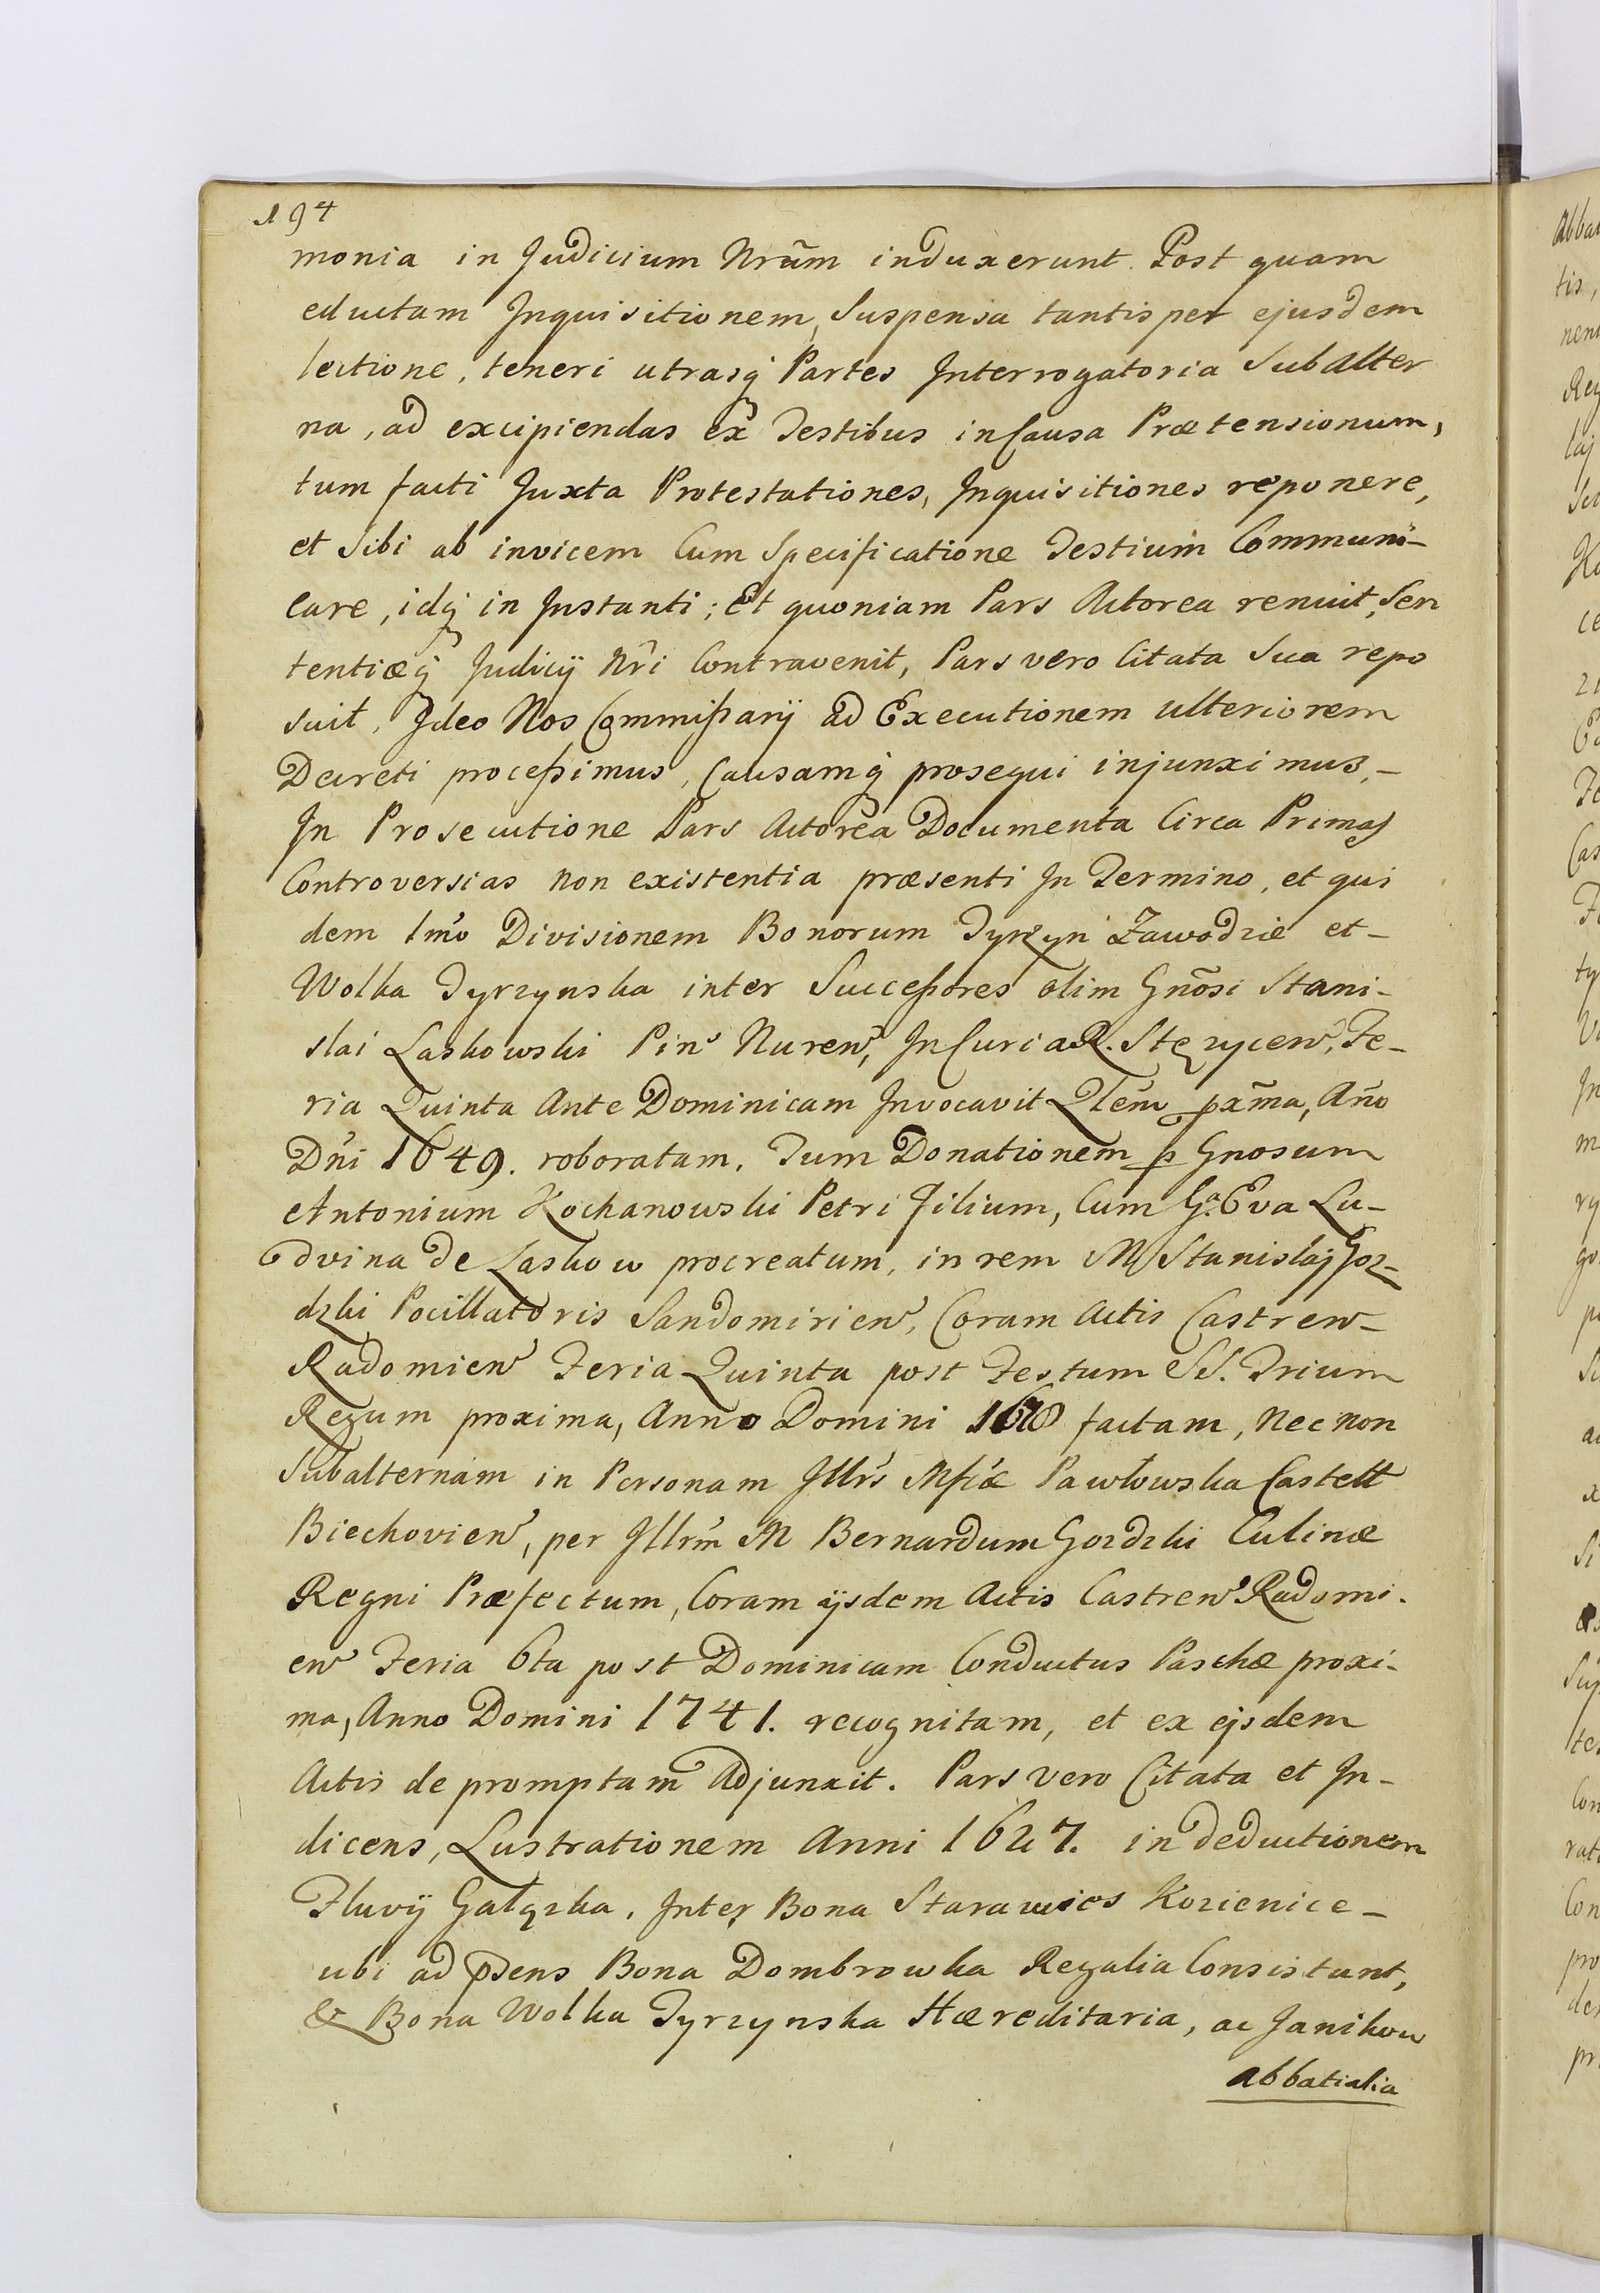 194
monia in Judicium Nrũm induxerunt. Post quam
eductam Inquisitionem, Suspensa tantisper ejusdem
lectione, teneri utrasq́ Partes Interrogatoria Subalter
na, ad excipiendas ex Testibus in Causa Prætensionum,
tum facti Juxta Protestationes, Inquisitiones reponere,
et Sibi ab invicem Cum Specificatione Testium Communi-
care, idq́ in Instanti; Et quoniam Pars Actorea renuit, Sen
tentiæq́ Judicij Nrĩ Contravenit, Pars vero Citata Sua repo
suit, Ideo Nos Commißarij ad Executionem ulteriorem
Decreti proceßimus, Causamq́ prosequi injunximus,-
In Prosecutione Pars Actorea Documenta Circa Primas
Controversias non existentia præsenti In Termino, et qui
dem 1mo Divisionem Bonorum Tyrzyn Zawodzie et-
Wolka Tyrzynska inter Succeßores olim Gnõsi Stani-
slai Laskowski Pinõ Nuren, In Curia R. Stęzycen, Fe-
ria Quinta Ante Dominicam Invocavit Qlem pxm̃a, Año
Dñi 1649. roboratam, Tum Donationem p Gnosum
Antonium Kochanowski Petri Filium, Cum G. Eva Lu-
dvina de Laskow procreatum, in rem M Stanislaj Goz-
dzki Pocillatoris Sandomirien, Coram Actis Castren-
Radomien Feria Quinta post Festum SS. Trium
Regum proxima, Anno Domini factam, Nec non
Subalternam in Personam Jllrs Mficæ Pawłowska Castell
Biechovien, per Jllrm M Bernardum Gozdzki Culinæ
Regni Præfectum, Coram ijsdem Actis Castren Radomi.
en Feria 6ta post Dominicam Conductus Paschæ proxi-
ma, Anno Domini 1741. recognitam, et ex ejsdem
Actis depromptam Adjunxit. Pars vero Citata et In-
dicens, Lustrationem Anni 1627. in deductionem
Fluvij Gałązka, Inter Bona Starawies Kozienice-
ubi ad psens Bona Dombrowka Regalia Consistunt,
& Bona Wolka Tyrzynska Hæreditaria, ac Janikow
abbatialia